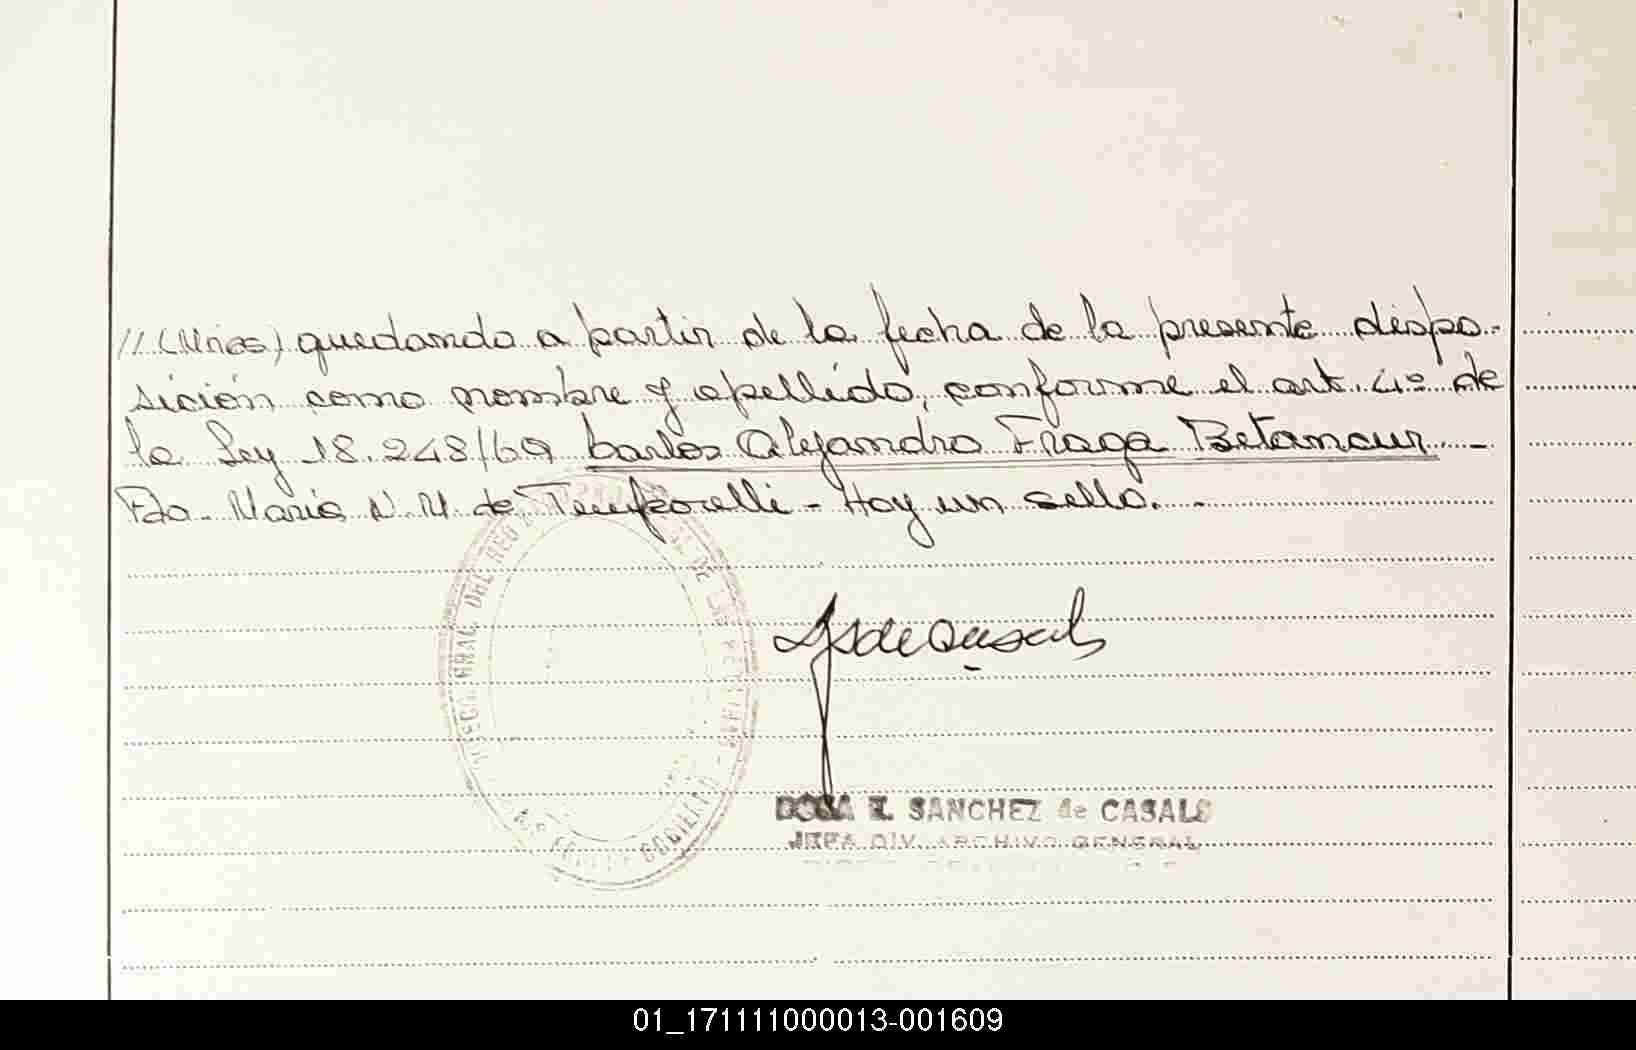 quedando a partir de la fecha de la presente dispo-
sición como nombre y apellido, conforme el art. 4º de
la Ley 18.248/69 Carlos Alejandro Fraga Betancur. -
Fdo. María N. M. de - Hay un sello. -
SANCHEZ de CASALS
JEFA DIV. ARCHIVO GENERAL
01_171111000013-001609